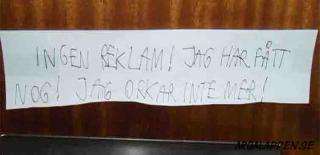 INGEN REKLAM! JAG HAR FÅTT
NOG! JAG ORKAR INTE MER!
ARGALAPPEN.SE